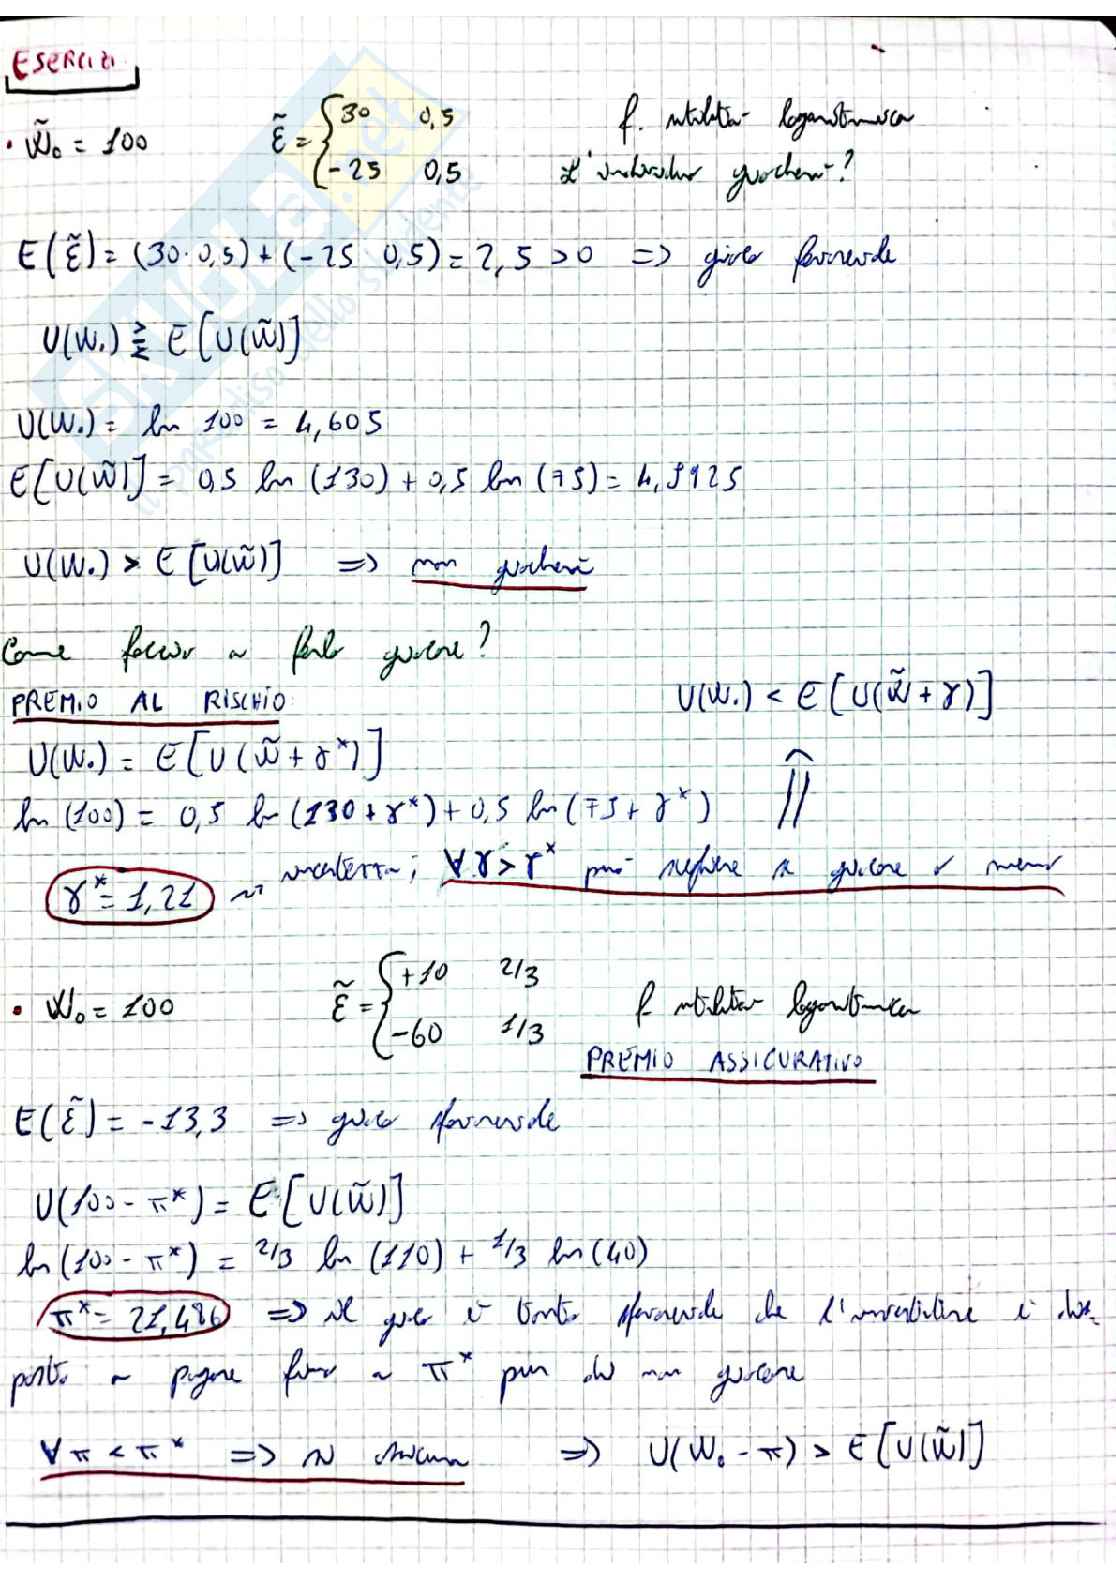 ESERCIZI
• W̃₀ = 100 ε̃ = { 30 0,5 f. utilità logaritmica
-25 0,5 L'individuo giocherà?
E(ε̃) = (30·0,5)+(-25 0,5) = 2,5 >0 => gioco favorevole
U(W₀) ⋛ E[U(W̃)]
U(W₀) = ln 100 = 4,605
E[U(W̃)] = 0,5 ln (130) + 0,5 ln (75) =
U(W₀) > E[U(W̃)] => non giocherà
Come faccio a farlo giocare?
PREMIO AL RISCHIO U(W₀) < E[U(W̃ + γ)]
U(W₀) = E[U(W̃ + γ*)]
ln (100) = 0,5 ln (130 + γ*) + 0,5 ln (75 + γ*) ⇑
γ* = 1,21 incertezza; ∀ γ > γ* può scegliere se giocare o meno
• W₀ = 100 ε̃ = { +10 2/3 f utilità logaritmica
-60 1/3
PREMIO ASSICURATIVO
E(ε̃) = -13,3 => gioco sfavorevole
U(100 - π*) = E[U(W̃)]
ln (100 - π*) = 2/3 ln (110) + 1/3 ln (40)
π* = 21,486 => il gioco è tanto sfavorevole che l'investitore è dis-
posto a pagare fino a π* pur di non giocare
∀ π < π* => si assicura => U(W₀ - π) > E[U(W̃)]
SKUOLA.net
il paradiso dello studente